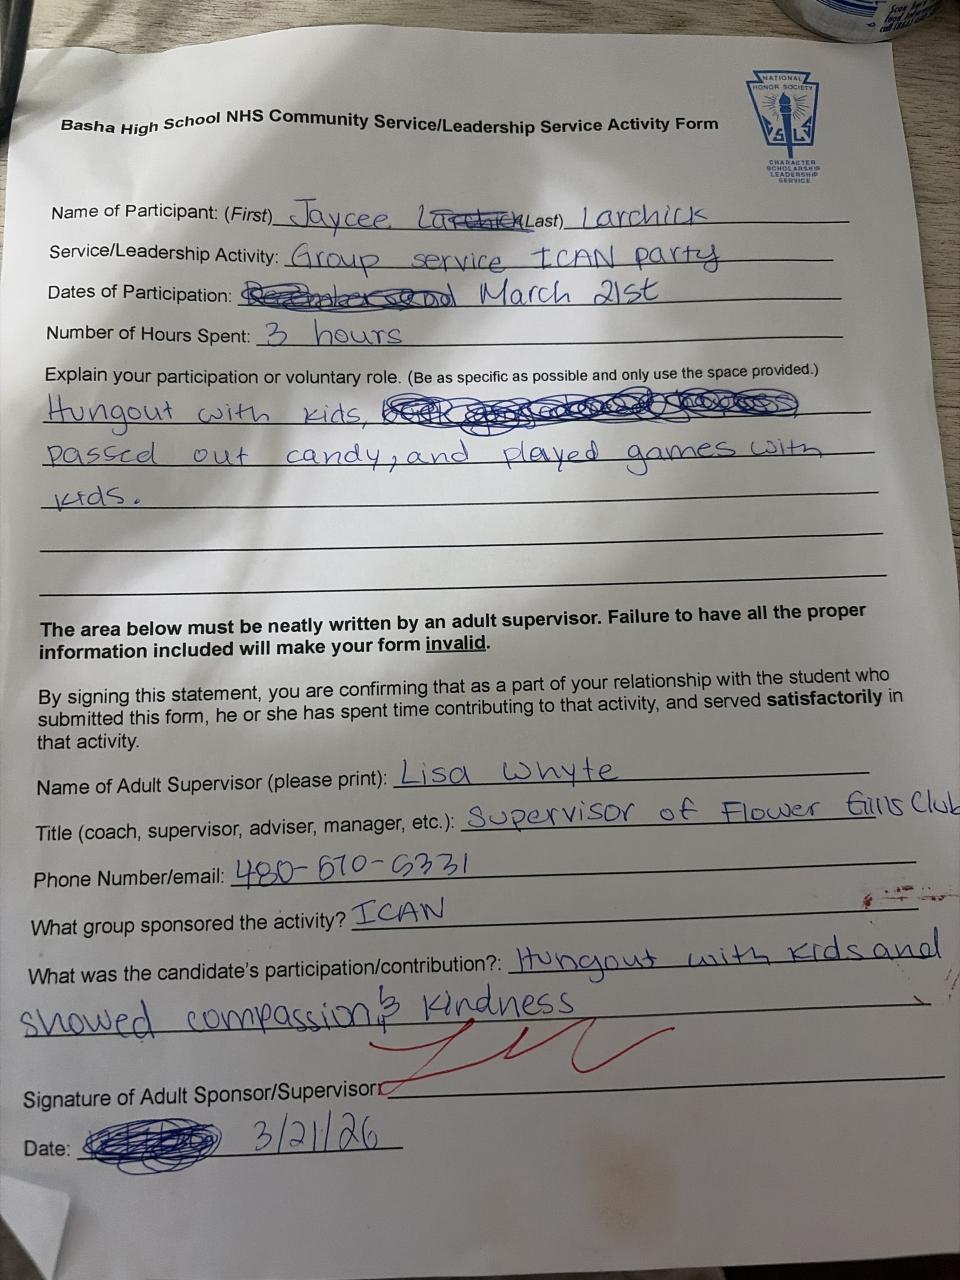 NATIONAL
HONOR SOCIETY
S L S
CHARACTER
SCHOLARSHIP
LEADERSHIP
SERVICE
Basha High School NHS Community Service/Leadership Service Activity Form
Name of Participant: (First) Jaycee (Last) Larchick
Service/Leadership Activity: Group service ICAN party
Dates of Participation: March 21st
Number of Hours Spent: 3 hours
Explain your participation or voluntary role. (Be as specific as possible and only use the space provided.)
Hungout with kids,
passed out candy, and played games with
kids.
The area below must be neatly written by an adult supervisor. Failure to have all the proper
information included will make your form invalid.
By signing this statement, you are confirming that as a part of your relationship with the student who
submitted this form, he or she has spent time contributing to that activity, and served satisfactorily in
that activity.
Name of Adult Supervisor (please print): Lisa Whyte
Title (coach, supervisor, adviser, manager, etc.): Supervisor of Flower Girls Club
Phone Number/email:
What group sponsored the activity? ICAN
What was the candidate's participation/contribution?: Hungout with kids and
showed compassion & kindness
Signature of Adult Sponsor/Supervisor:
Date: 3/21/26